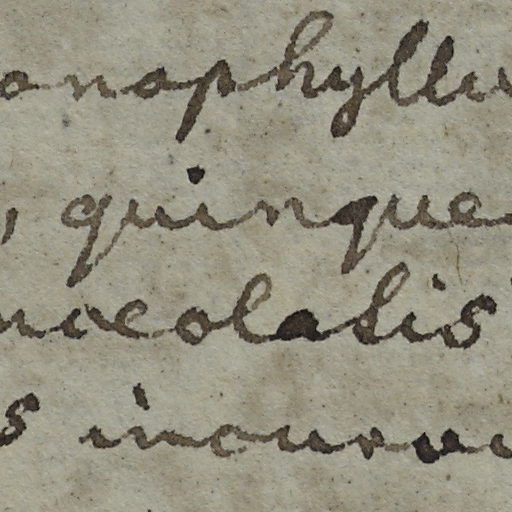 onophyllu
, quinque
nceolatis
s incurva